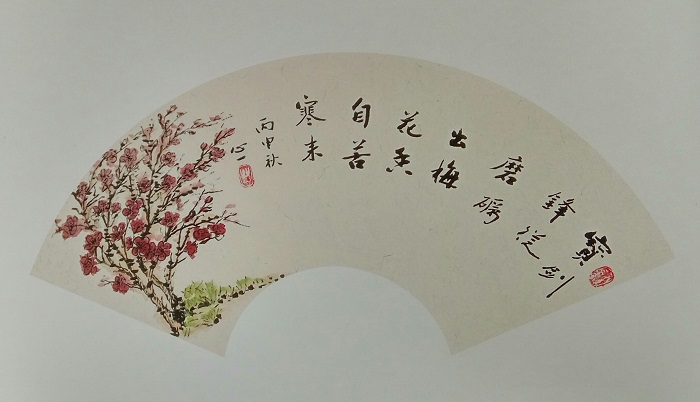 寶劍
鋒從
磨礪
出梅
花香
自苦
寒来
丙申秋